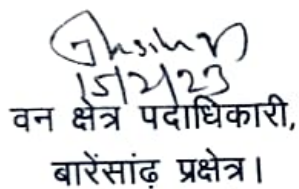 15/2/23
वन क्षेत्र पदाधिकारी,
बारेंसांढ़ प्रक्षेत्र।